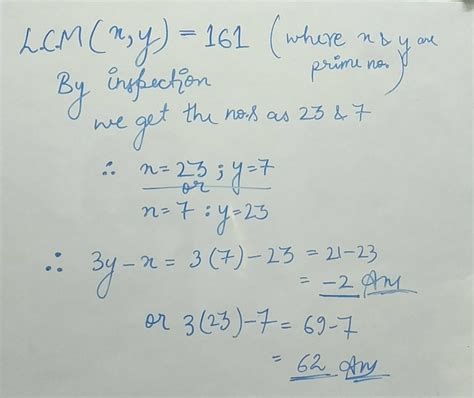 L.C.M(x,y) = 161 (where x & y are
prime nos)
By inspection
we get the no.s as 23 & 7
∴ x=23 ; y=7
or
x=7 : y=23
∴ 3y-x = 3(7)-23 = 21-23
= -2 Ans
or 3(23)-7 = 69-7
= 62 Ans